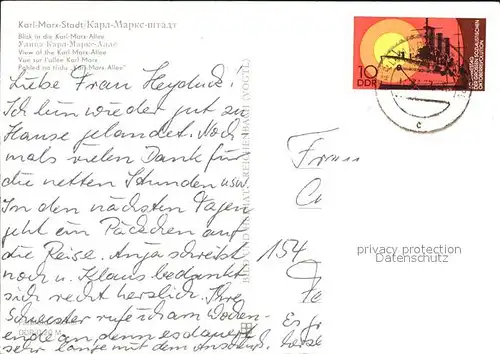 Karl-Marx-Stadt/Карл-Маркс-штадт
Blick in die Karl-Marx-Allee
Улица Карл-Маркс-Аллее
View of the Karl-Marx-Allee
Vue sur l'allée Karl Marx
Pohled na třídu „Karl-Marx-Allee"
10
DDR
OKTOBERREVOLUTION
Liebe Frau Heyduk!
Ich bin wieder gut zu
Hause gelandet. Noch
mals vielen Dank für
die netten Stunden usw.
In den nächsten Tagen
geht ein Päckchen auf
die Reise. Anja schreibt
noch u. Klaus bedankt
sich recht herzlich. Ihre
Schwester rufe ich am Wochen-
ende an, denn es dauert
sehr lange mit dem Anschluß.
BILD UND HEIMAT REICHENBACH (VOGTL)
Frau
154
Es
privacy protection
Datenschutz
c